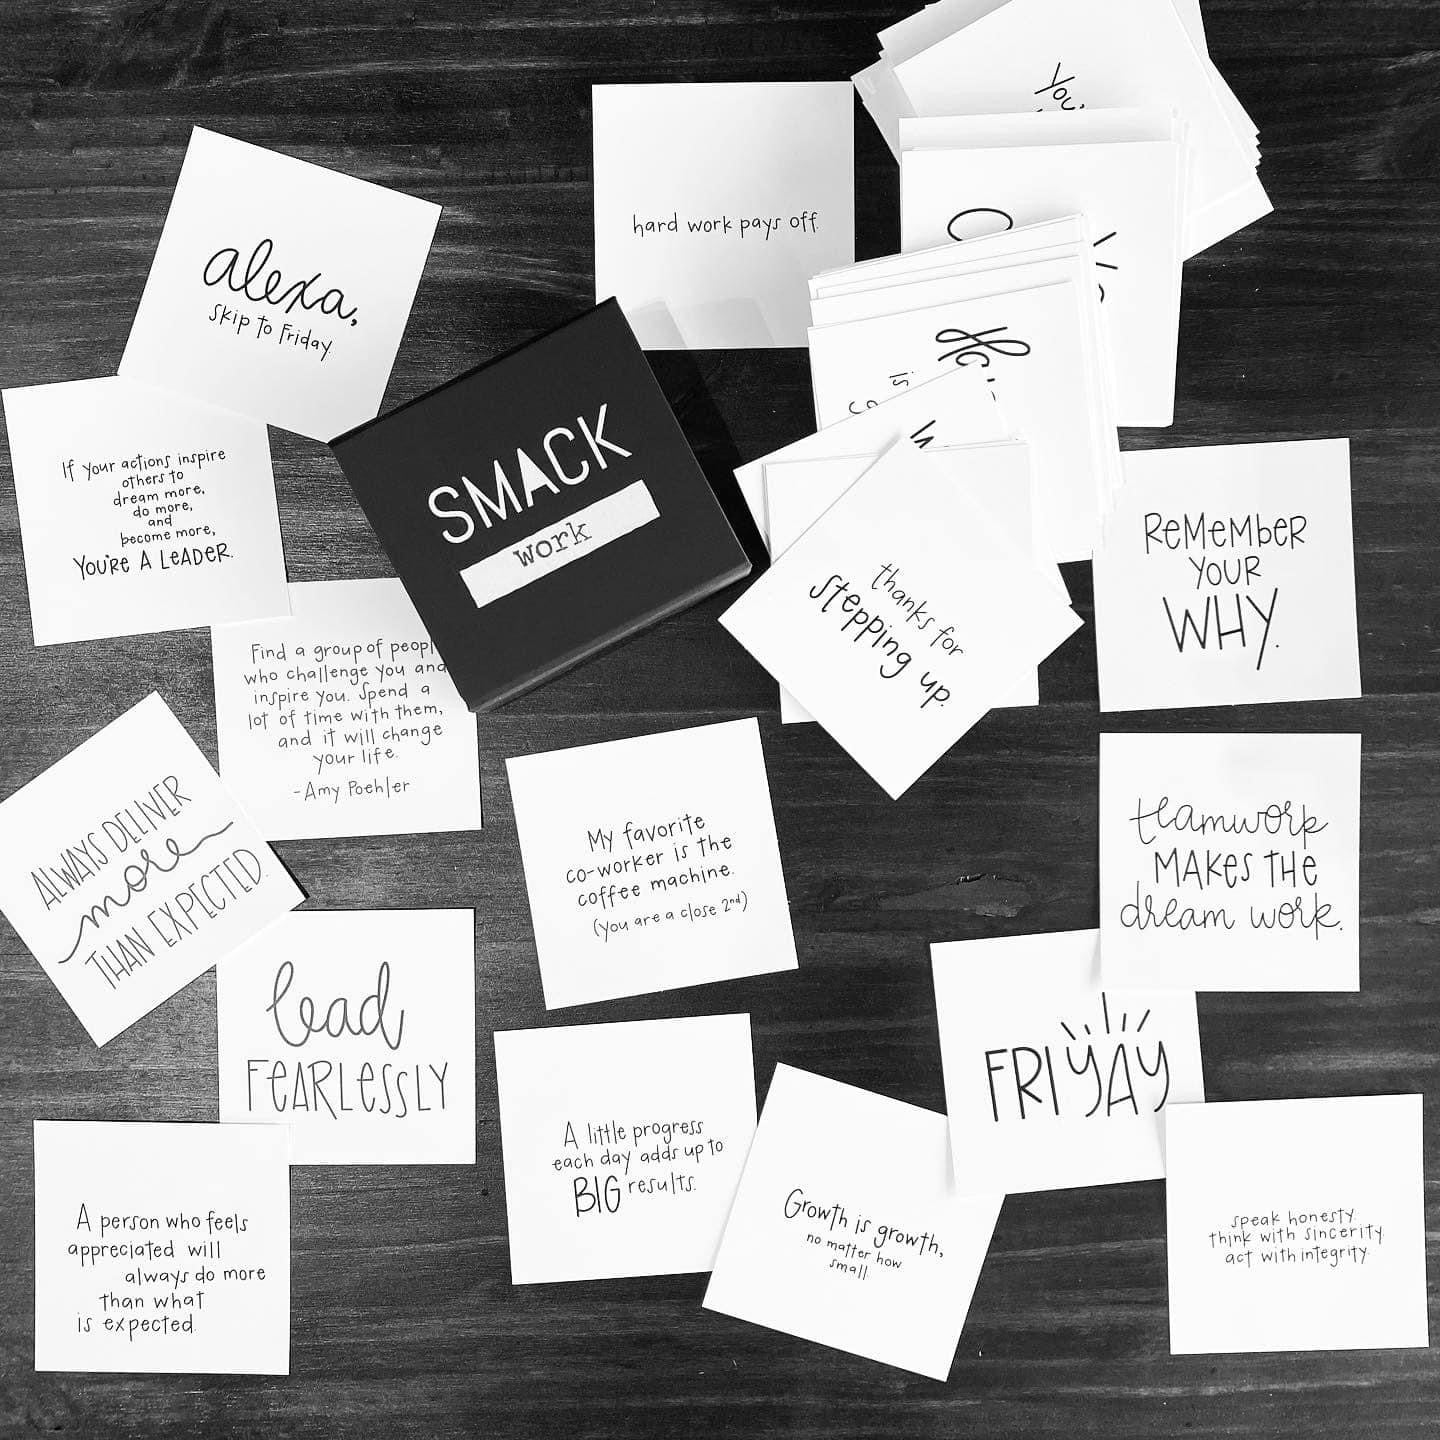 alexa,
skip to Friday.
hard work pays off.
You,
is
If your actions inspire
others to
dream more,
do more,
and
become more,
YOU'RE A LEADER.
SMACK
work
thanks for
stepping up.
REMEMBER
YOUR
WHY.
Find a group of peopl
who challenge you and
inspire you. Spend a
lot of time with them,
and it will change
your life.
-Amy Poehler
ALWAYS DELIVER
more
THAN EXPECTED.
My favorite
co-worker is the
coffee machine.
(you are a close 2nd)
teamwork
MAKES THE
dream work.
lead
FEARLESSLY
FRIYAY
A little progress
each day adds up to
BIG results.
A person who feels
appreciated will
always do more
than what
is expected.
Growth is growth,
no matter how
small.
speak honesty.
think with sincerity.
act with integrity.